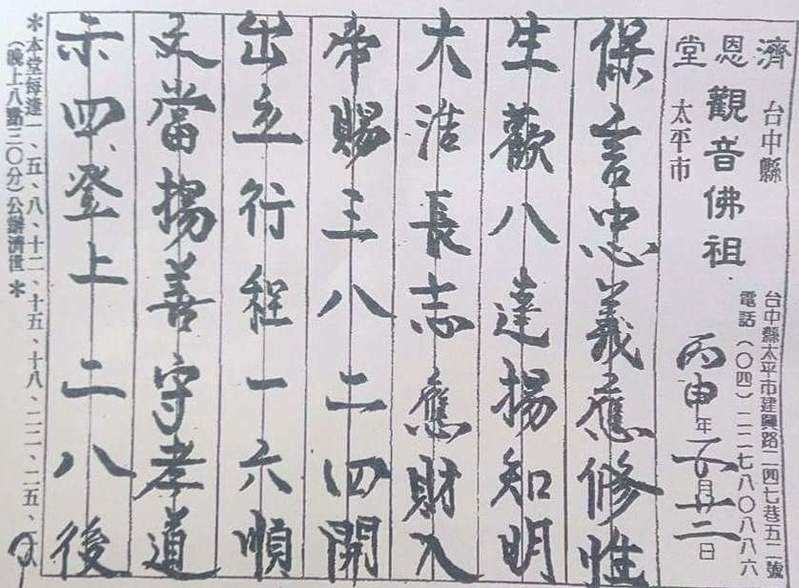 濟恩堂
台中縣
太平市
觀音佛祖
台中縣太平市建興路二四七巷五二號
電話(〇四)二二七八〇八八六
丙申年 月廿二日
保言忠義應修性
生歡八達揚知明
大浩長志應財入
帝賜三八二四開
出立行程一六順
文當揚善守孝道
示四登上二八後
＊本堂每逢一、五、八、十二、十五、十八、二二、二五、
(晚上八點三〇分)公辦濟世＊